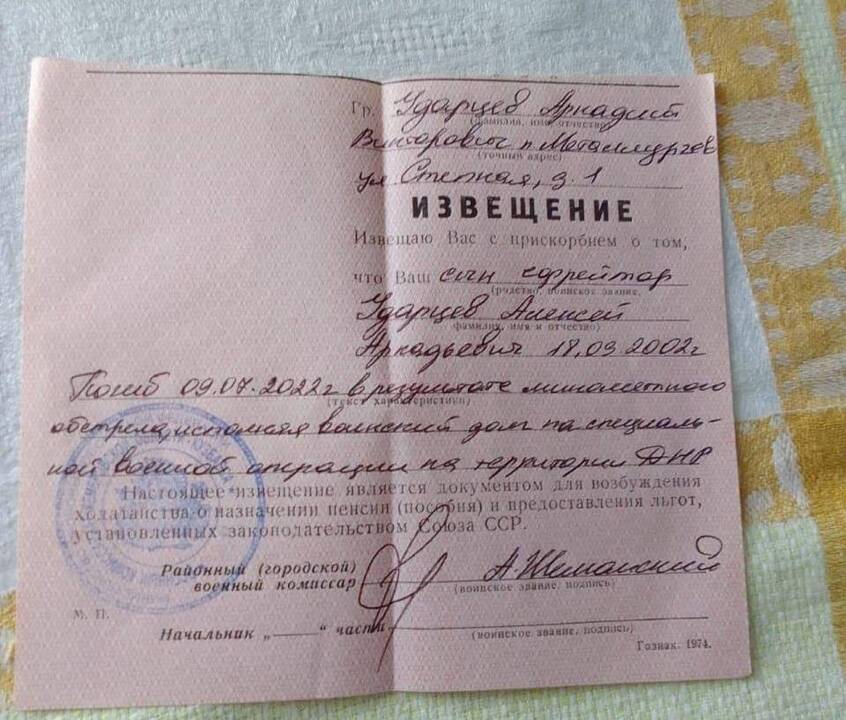 Гр. Ударцев Аркадий
(фамилия, имя отчество)
Викторович п. Металлургов
(точный адрес)
ул Степная, д. 1
ИЗВЕЩЕНИЕ
Извещаю Вас с прискорбием о том,
что Ваш сын ефрейтор
(родство, воинское звание,
Ударцев Алексей
фамилия, имя и отчество)
Аркадьевич 18.03 2002г
Погиб 09.07.2022г в результате минометного
(текст характеристики)
обстрела, исполняя воинский долг на специаль-
ной военной операции на территории ДНР
Настоящее извещение является документом для возбуждения
ходатайства о назначении пенсии (пособия) и предоставления льгот,
установленных законодательством Союза ССР.
Районный (городской)
военный комиссар А. Шеманский
(воинское звание, подпись)
М. П.
Начальник „ “ части
(воинское звание, подпись)
Гознак. 1974.